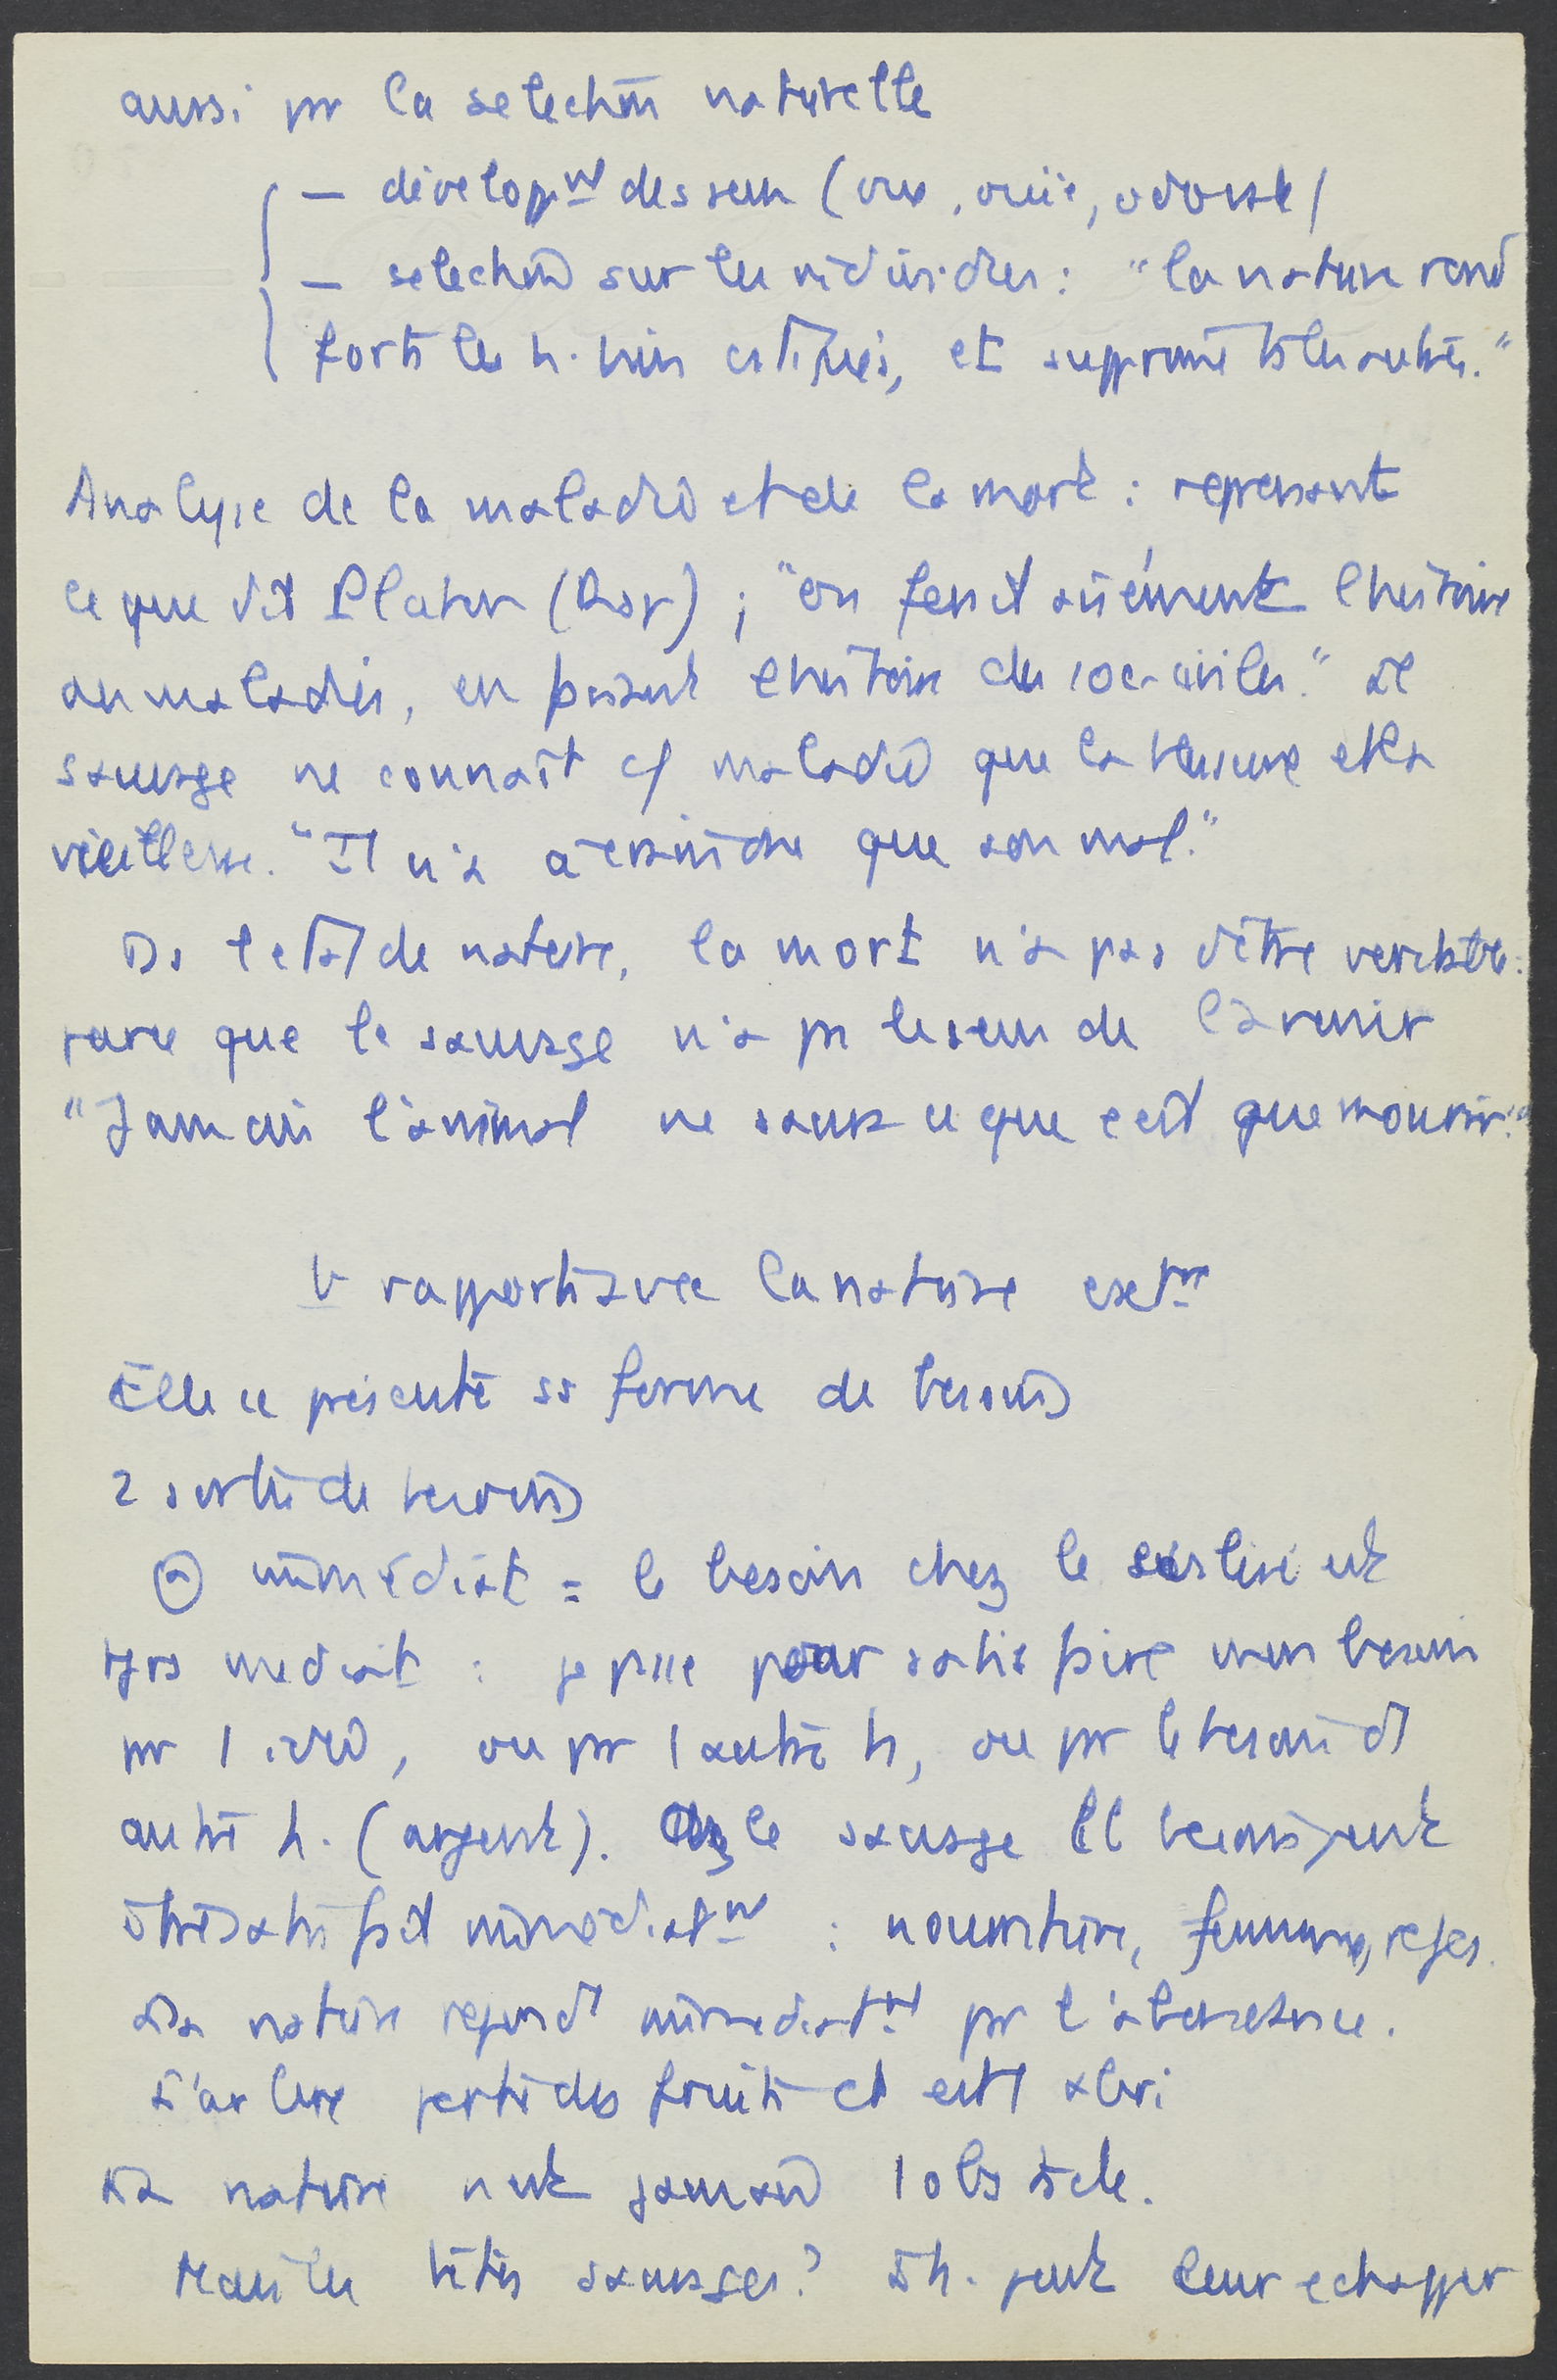 aussi par la selection naturelle
– développt des sens (vue, ouïe, odorat)
– selection sur les individus : "la nature rend
forts les h. bien constitués, et supprime ts les autres."
Analyse de la maladie et de la mort : reprenant
ce que dit Platon (Rep) ; "on ferait aisément l'histoire
des maladies, en faisant l'histoire des soc. civiles." Le
sauvage ne connaît c/ maladie que la blessure et la
vieillesse. "Il n'a à craindre que son mal."
Ds l'état de nature, la mort n'a pas d'être veritable :
parce que le sauvage n'a pas le sens de l'avenir
"Jamais l'animal ne saura ce que c'est que mourir."
b- rapports avec la nature extre
Elle se présente ss forme de besoins
2 sortes de besoins
a immédiat = le besoin chez le civilisé est
tjrs mediat : je passe pour satisfaire mon besoin
par 1 idée, ou par 1 autre h, ou par le besoin d'1
autre h. (argent). Chez le sauvage le besoin peut
être satisfait immédiatt : nourriture, femme, repos.
La nature repond immediatt par l'abondance.
L'arbre porte des fruits et est 1 abri
La nature n'est jamais 1 obstacle.
Mais les bêtes sauvages ? L'h. peut leur echapper